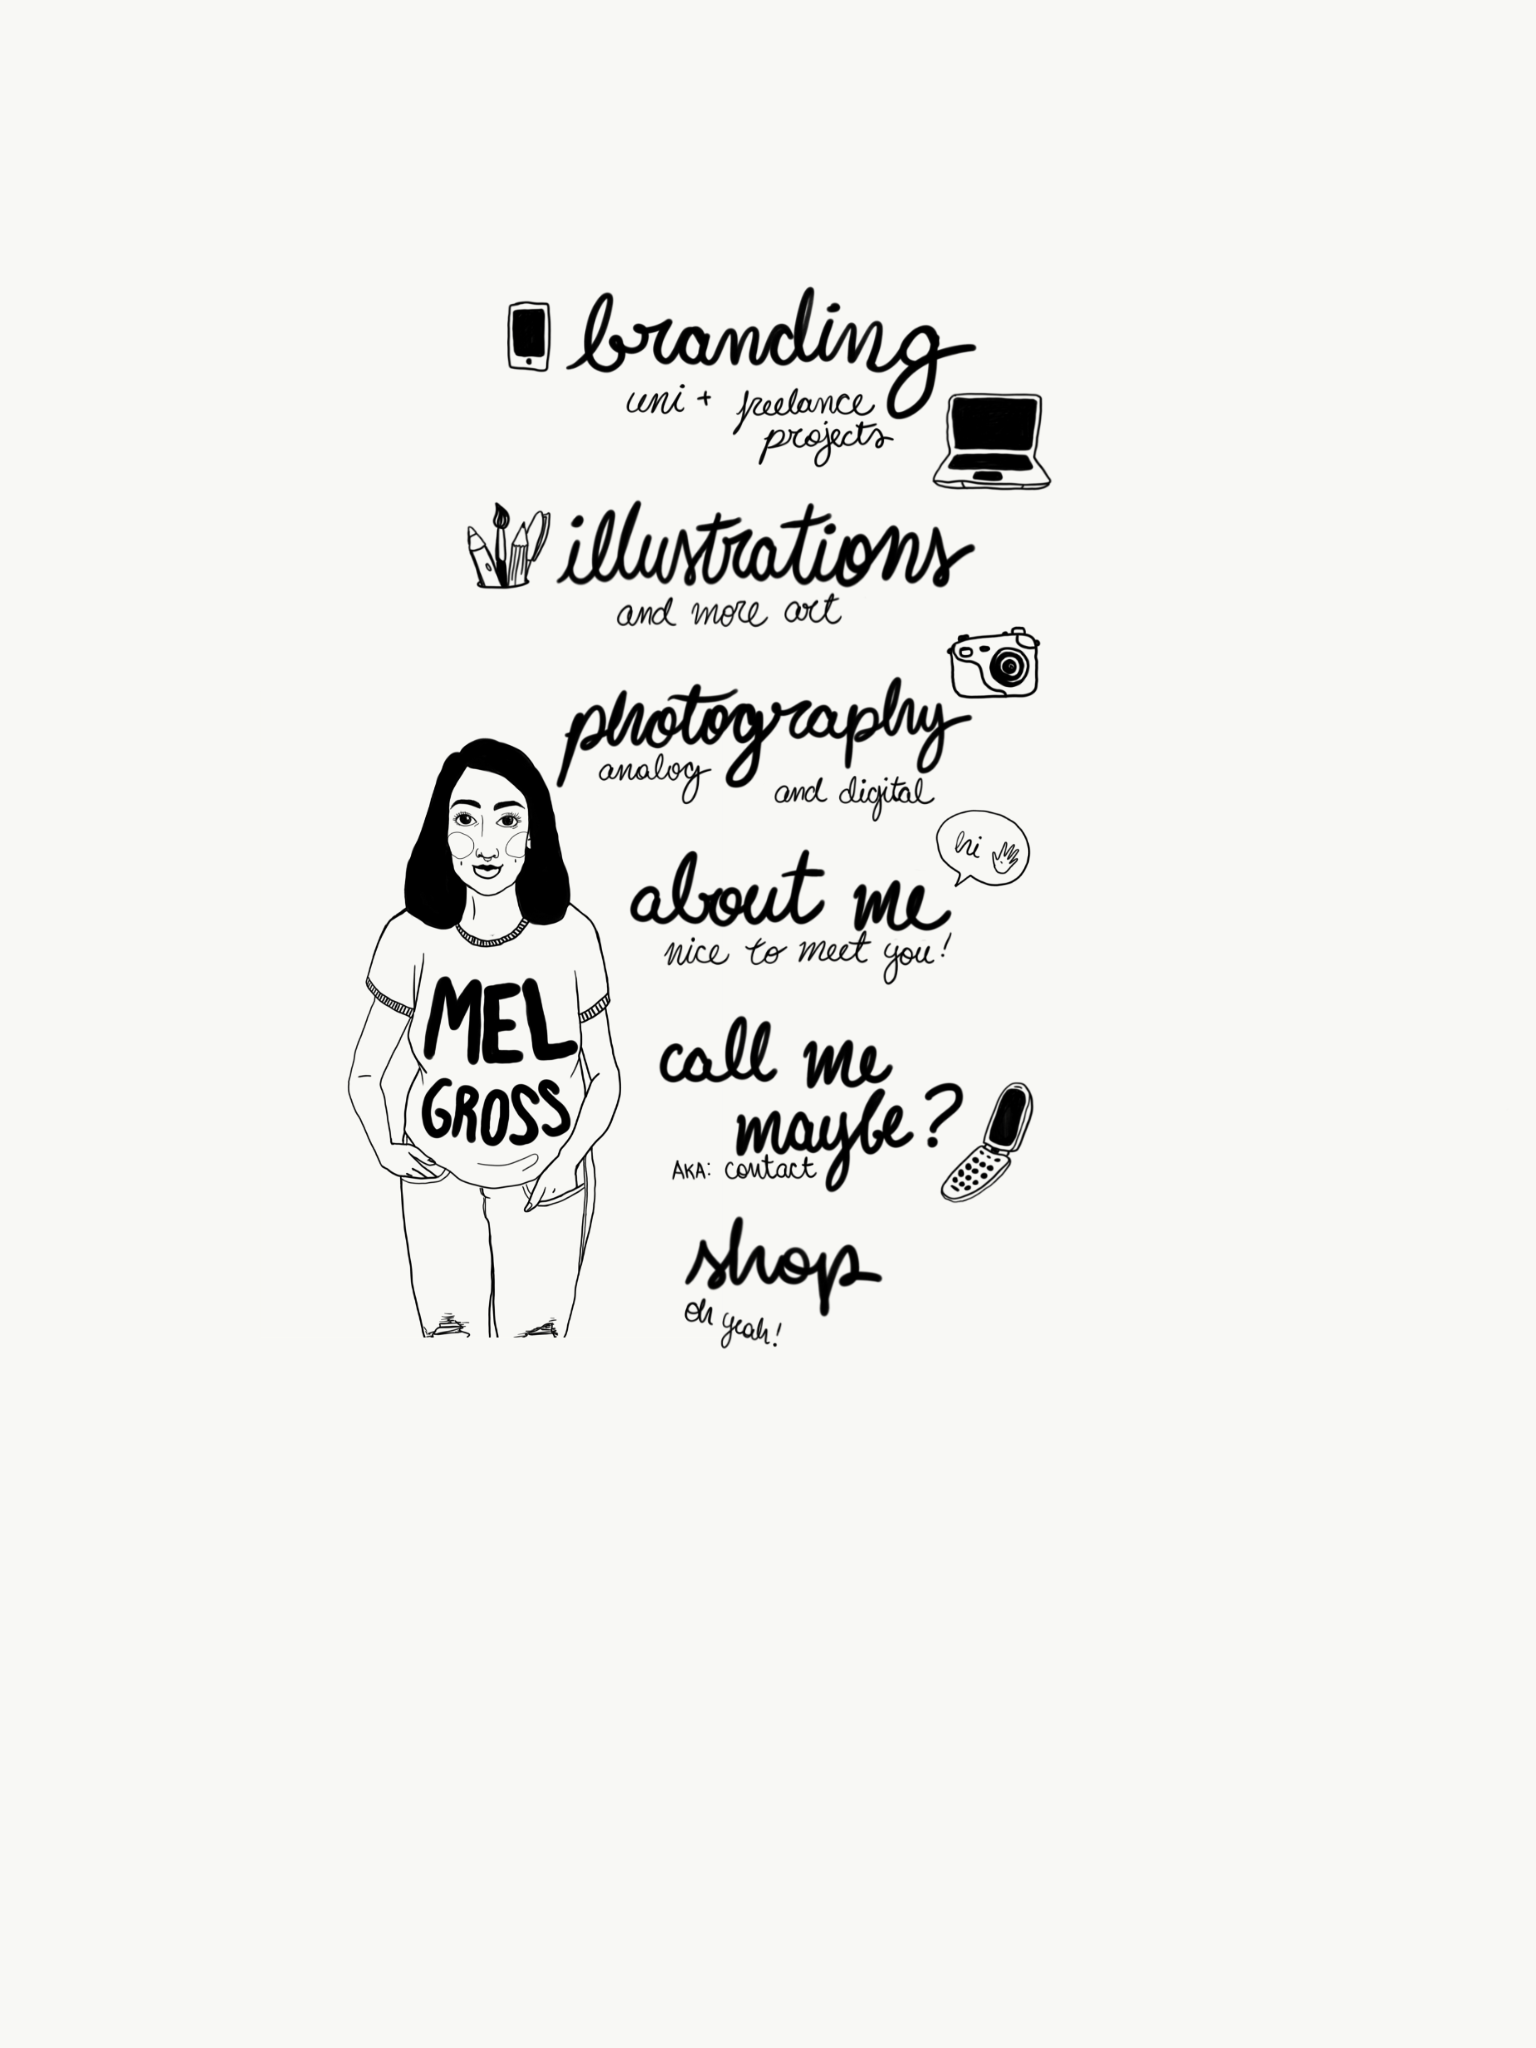 branding
uni + freelance
projects
illustrations
and more art
photography
analog
and digital
hi
about me
nice to meet you!
MEL
GROSS
call me
maybe?
AKA: contact
shop
oh yeah!